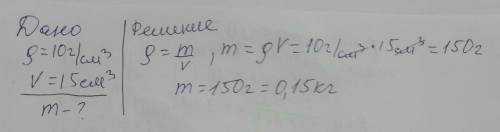 Дано
ρ=10г/см³
V=15см³
m-?
Решение
ρ=m/v, m=ρV=10г/см³·15см³=150г
m=150г=0,15кг